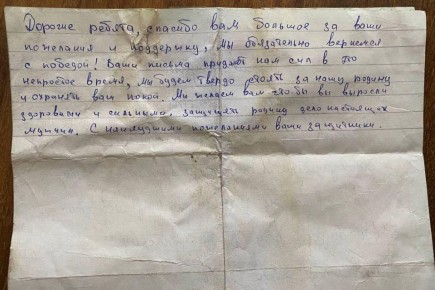 Дорогие ребята, спасибо вам большое за ваши
пожелания и поддержку, мы обязательно вернемся
с победой! Ваши письма придают нам сил в это
непростое время, мы будем твердо стоять за нашу родину
и охранять ваш покой. Мы желаем вам что-бы вы выросли
здоровыми и сильными, защищать родину дело настоящих
мужчин. С наилучшими пожеланиями ваши защитники.